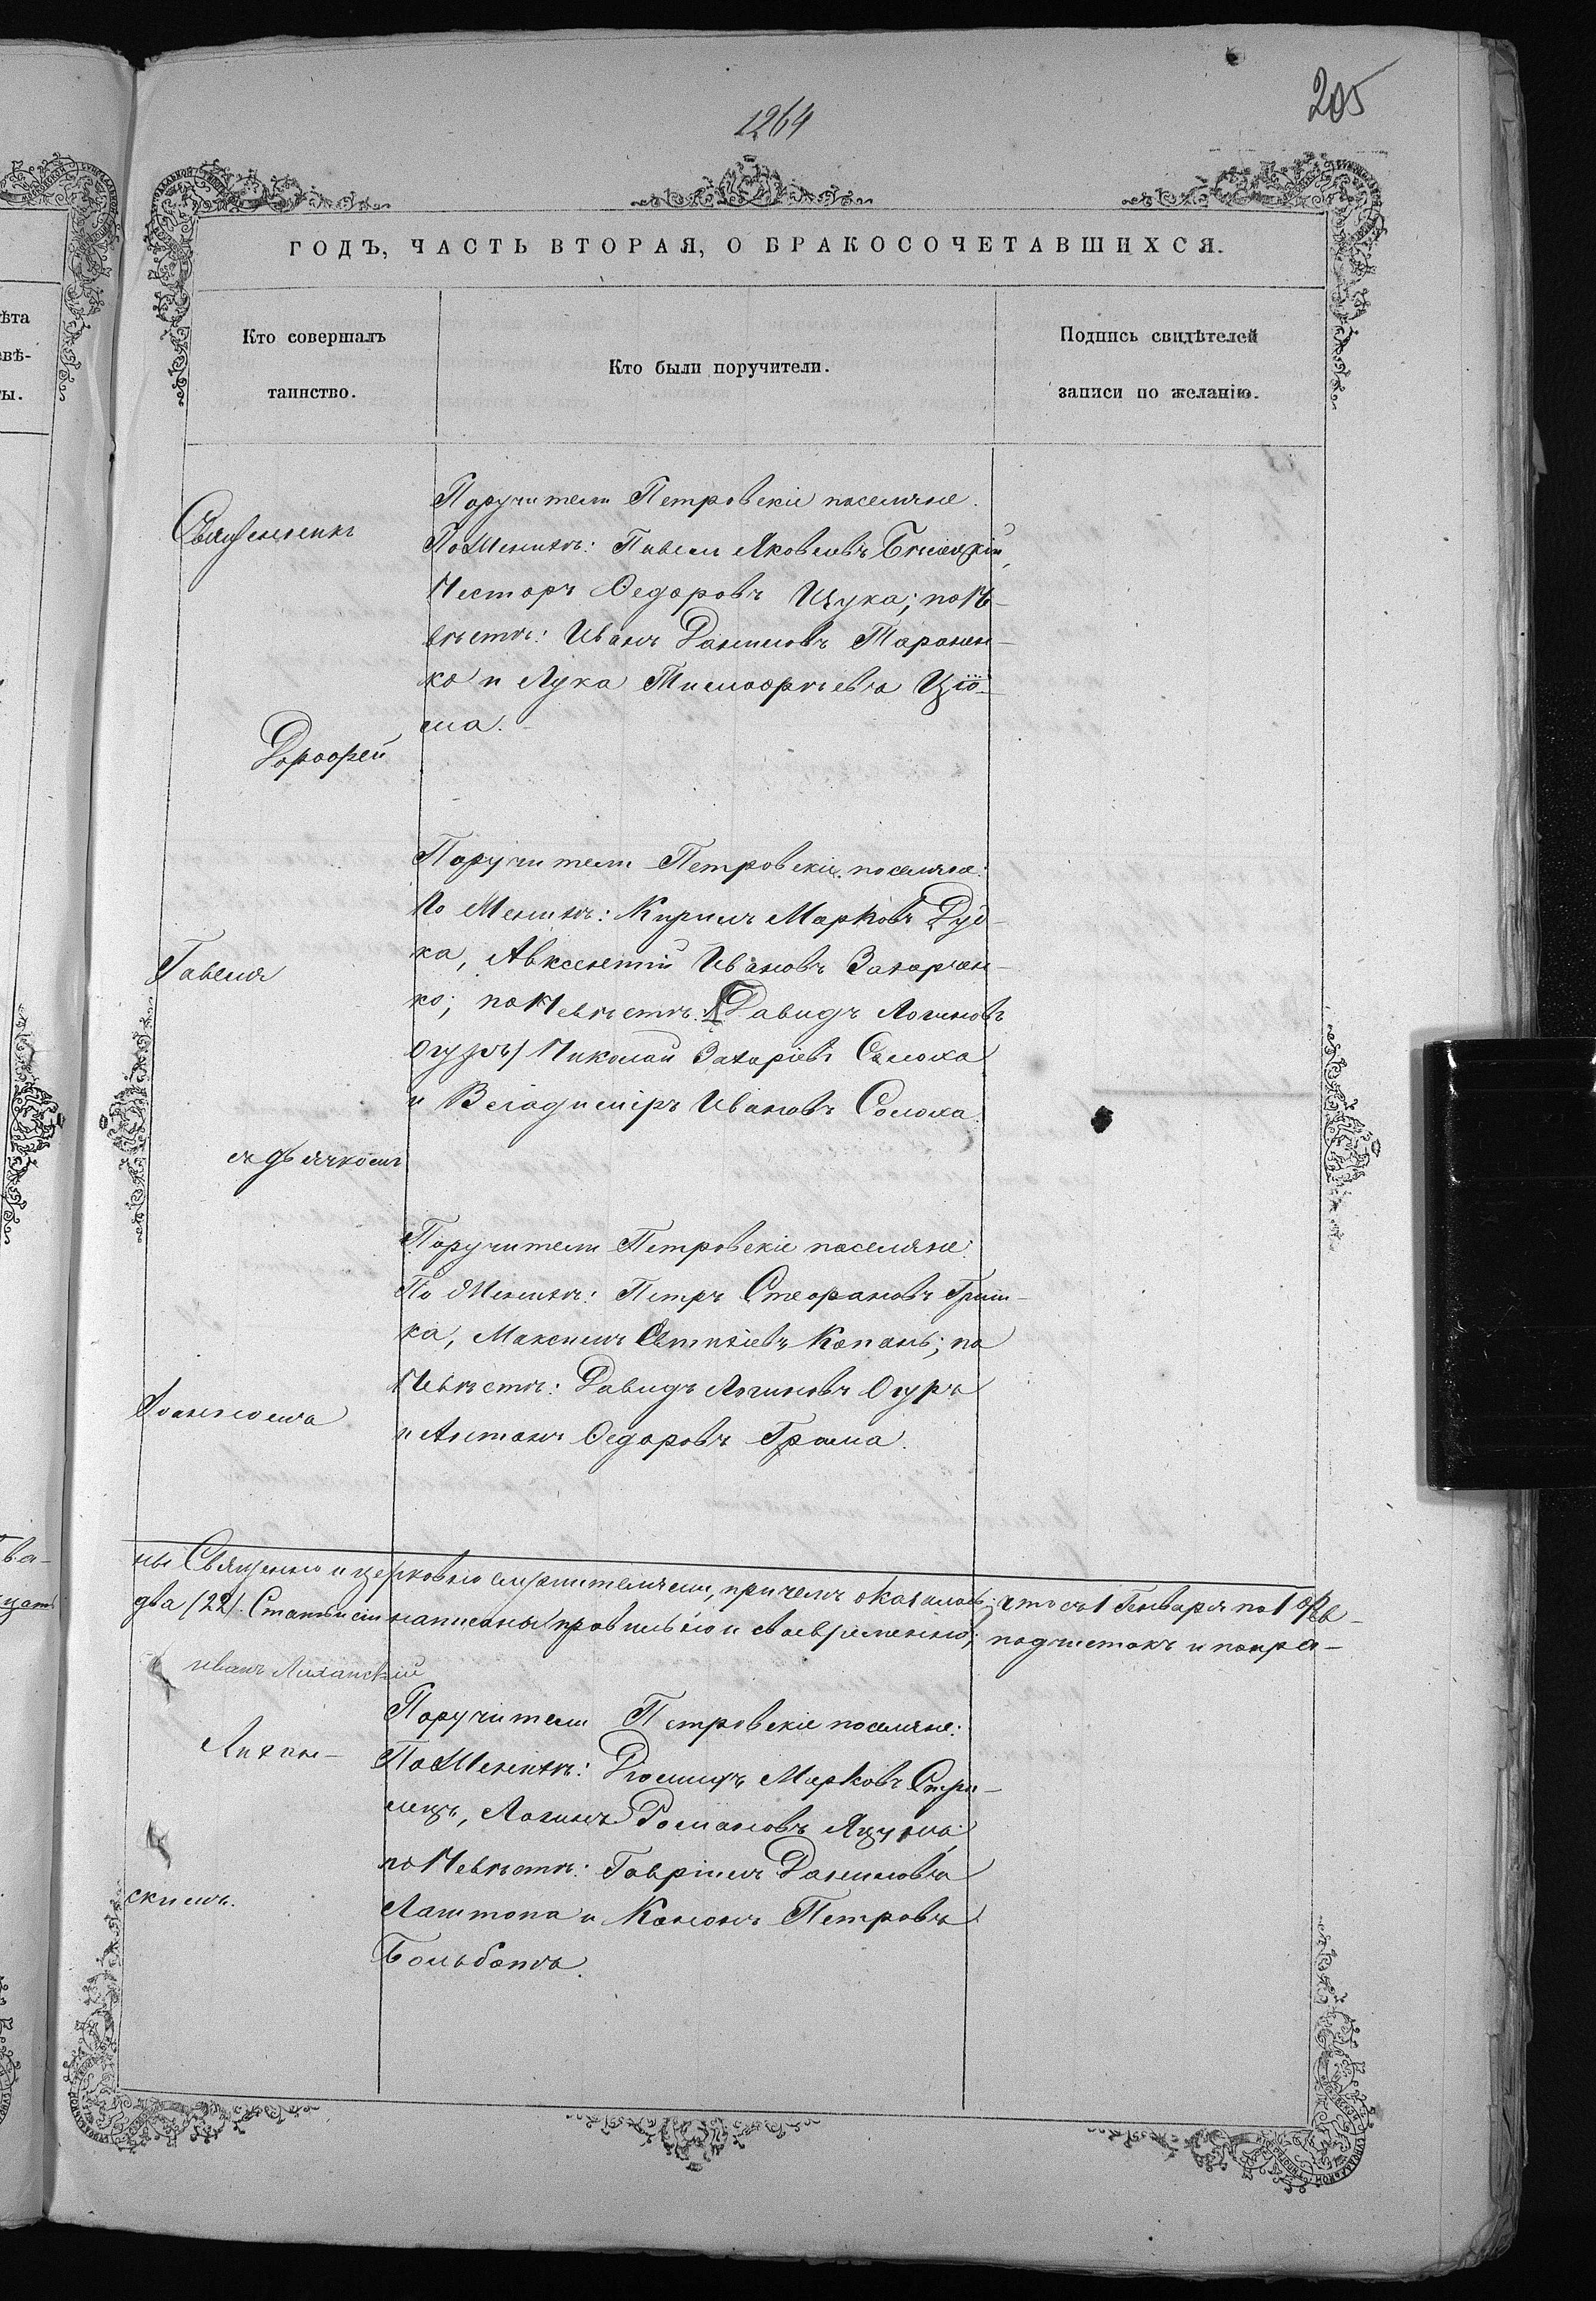 205
1264
ГОДЪ, ЧАСТЬ ВТОРАЯ, О БРАКОСОЧЕТАВШИХСЯ.
Кто совершалъ
таинство.
Кто были поручители.
Подпись свидѣтелей
записи по желанію.
Священникъ
Дорофей
Гавеля
съ дьячкомъ
Іоанномъ
Поручители Петровскіе поселяне.
По Женихѣ: Павелъ Яковлевъ
Несторъ Ѳедоровъ Щука; по Не-
вѣстѣ: Иванъ Даниловъ Таранен-
ко и Лука Тимофѣевъ Цю-
ма.
Поручители Петровскіе поселяне:
По Женихѣ: Кирилъ Марковъ Дуд-
ка, Авксентій Ивановъ Захарчен-
ко; по Невѣстѣ: Давидъ Логиновъ
Огурь/ Николай Захаріевъ Солоха
и Владиміръ Ивановъ Солоха.
Поручители Петровскіе поселяне:
По Женихѣ: Петръ Стефановъ Гриш-
ка, Максимъ Копань; по
Невѣстѣ: Давидъ Логиновъ Огурь
и Антонъ Ѳедоровъ Грама.
ны Священно и церковно служителями, причемъ оказалось: что съ 1 Генваря по 1 Фев-
два (22). Статьи сіи написаны правильно и своевременно; подчистокъ и попра-
Иванъ Лиханскій
Лихан-
скимъ.
Поручители Петровскіе поселяне:
По Женихѣ: Діомидъ Марковъ Стри-
лецъ, Логинъ Романовъ Яцуна;
по Невѣстѣ: Гавріилъ Даниловъ
Лаштопа и Кононъ Петровъ
Больботъ.